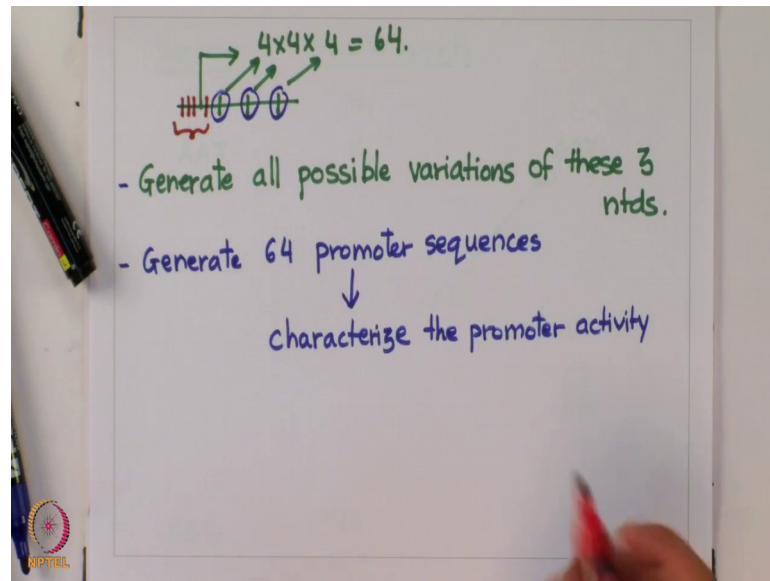 4x4x 4 = 64.
- Generate all possible variations of these 3
ntds.
- Generate 64 promoter sequences
characterize the promoter activity
NPTEL